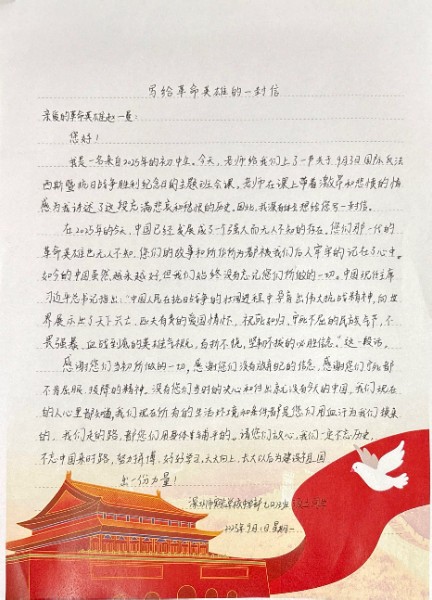 写给革命英雄的一封信
亲爱的革命英雄赵一曼：
您好！
我是一名来自2025年的初中生。今天，老师给我们上了一节关于9月3日国际反法
西斯暨抗日战争胜利纪念日的主题班会课。老师在课上带着激昂和悲愤的情
感为我讲述了这段充满悲哀和的历史。因此，我深有想给您写一封信。
在2025年的今天，中国已经发展成了一个强大而无人不知的存在。您们那一代的
革命英雄也无人不知，您们的故事和所作所为都被我们后人牢牢的记在了心中。
如今的中国虽然越来越好，但我们始终没有忘记您们所做的一切。中国
习近平总书记指出：“中国人民在抗日战争的壮阔进程中孕育出伟大抗战精神，向世
界展示了天下兴亡、匹夫有责的爱国情怀，视死如归、宁死不屈的民族气节，不
畏强暴、血战到底的英雄气概，百折不挠、坚韧不拔的必胜信念。”这一段话。
感谢您们当初所做的一切，感谢您们没有放弃自己的信念，感谢您们宁死都
不肯屈服、投降的精神。没有您们当时的决心和付出就没有今天的中国，我们现在
的人心里都知道，我们现在所有的生活环境和条件都是您们用血汗为我们换来
的，我们走的路，都您们用身体铺平的。请您们放心，我们一定不忘历史，
不忘中国来时路，努力拼搏，好好学习，天天向上，长大以后为建设祖国
出一份力量！
2025年9月1日 星期一